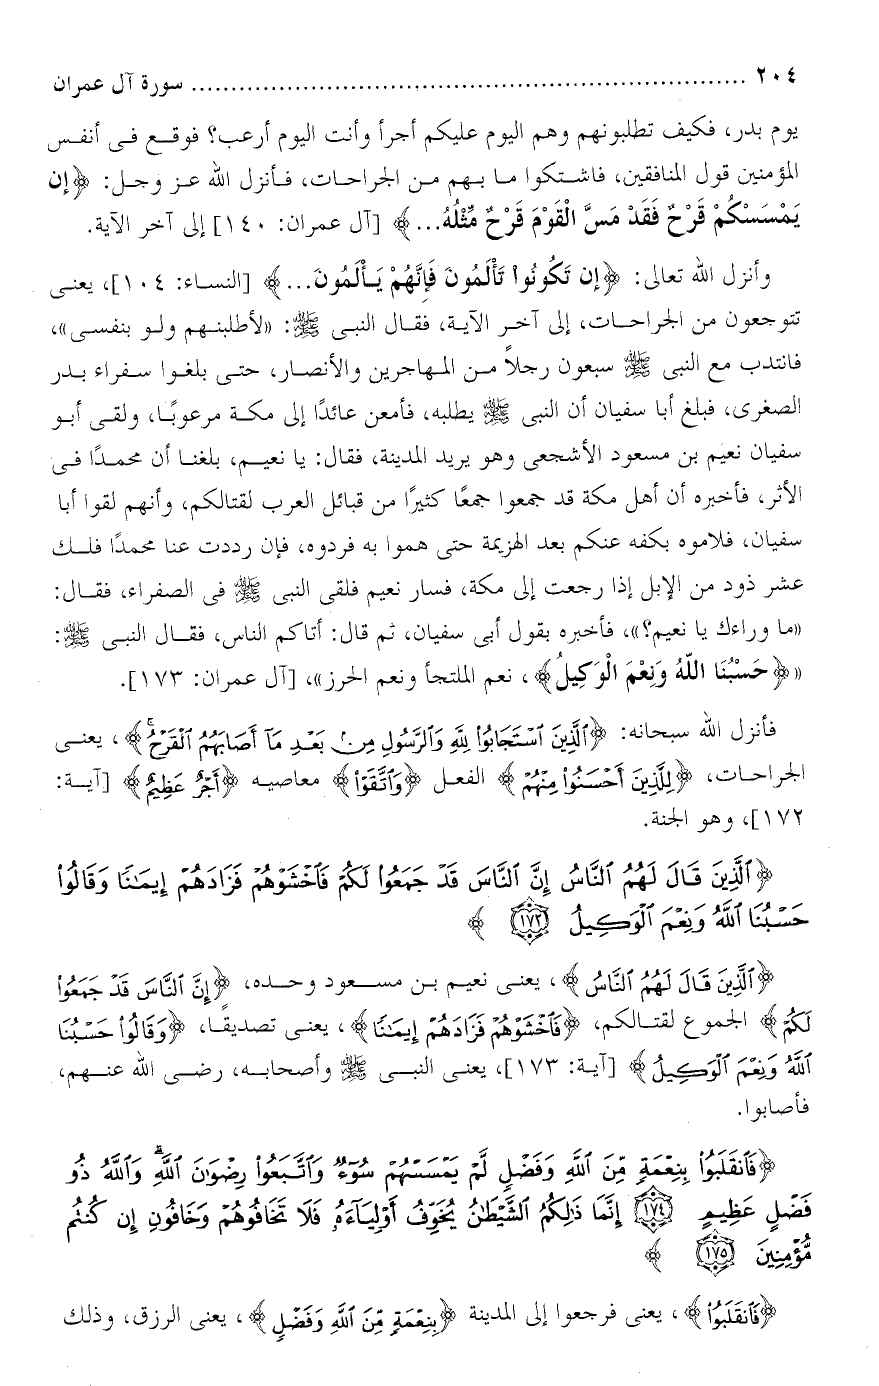 ٢٠٤ ...................................................................... سورة آل عمران
يوم بدر، فكيف تطلبونهم وهم اليوم عليكم أجرأ وأنت اليوم أرعب؟ فوقع فى أنفس
المؤمنين قول المنافقين، فاشتكوا ما بهم من الجراحات، فأنزل الله عز وجل: ﴿إن
يَمْسَسْكُمْ قَرْحٌ فَقَدْ مَسَّ الْقَوْمَ قَرْحٌ مِّثْلُهُ...﴾ [آل عمران: ١٤٠] إلى آخر الآية.
وأنزل الله تعالى: ﴿إِن تَكُونُواْ تَأْلَمُونَ فَإِنَّهُمْ يَأْلَمُونَ...﴾ [النساء: ١٠٤]، يعنى
تتوجعون من الجراحات، إلى آخر الآية، فقال النبى ﷺ: «لأطلبنهم ولو بنفسى»،
فانتدب مع النبى ﷺ سبعون رجلاً من المهاجرين والأنصار، حتى بلغوا سفراء بدر
الصغرى، فبلغ أبا سفيان أن النبى ﷺ يطلبه، فأمعن عائدًا إلى مكة مرعوبًا، ولقى أبو
سفيان نعيم بن مسعود الأشجعى وهو يريد المدينة، فقال: يا نعيم، بلغنا أن محمدًا فى
الأثر، فأخبره أن أهل مكة قد جمعوا جمعًا كثيرًا من قبائل العرب لقتالكم، وأنهم لقوا أبا
سفيان، فلاموه بكفه عنكم بعد الهزيمة حتى هموا به فردوه، فإن رددت عنا محمدًا فلك
عشر ذود من الإبل إذا رجعت إلى مكة، فسار نعيم فلقى النبى ﷺ فى الصفراء، فقال:
«ما وراءك يا نعيم؟»، فأخبره بقول أبى سفيان، ثم قال: أتاكم الناس، فقال النبى ﷺ:
«﴿حَسْبُنَا اللّهُ وَنِعْمَ الْوَكِيلُ﴾، نعم الملتجأ ونعم الحرز»، [آل عمران: ١٧٣].
فأنزل الله سبحانه: ﴿ٱلَّذِينَ ٱسْتَجَابُوا۟ لِلَّهِ وَٱلرَّسُولِ مِنۢ بَعْدِ مَآ أَصَابَهُمُ ٱلْقَرْحُ ۚ﴾، يعنى
الجراحات، ﴿لِلَّذِينَ أَحْسَنُوا۟ مِنْهُمْ﴾ الفعل ﴿وَٱتَّقَوْا۟﴾ معاصيه ﴿أَجْرٌ عَظِيمٌ﴾ [آية:
١٧٢]، وهو الجنة.
﴿ٱلَّذِينَ قَالَ لَهُمُ ٱلنَّاسُ إِنَّ ٱلنَّاسَ قَدْ جَمَعُوا۟ لَكُمْ فَٱخْشَوْهُمْ فَزَادَهُمْ إِيمَٰنًا وَقَالُوا۟
حَسْبُنَا ٱللَّهُ وَنِعْمَ ٱلْوَكِيلُ ١٧٣ ﴾
﴿ٱلَّذِينَ قَالَ لَهُمُ ٱلنَّاسُ﴾، يعنى نعيم بن مسعود وحده، ﴿إِنَّ ٱلنَّاسَ قَدْ جَمَعُوا۟
لَكُمْ﴾ الجموع لقتالكم، ﴿فَٱخْشَوْهُمْ فَزَادَهُمْ إِيمَٰنًا﴾، يعنى تصديقًا، ﴿وَقَالُوا۟ حَسْبُنَا
ٱللَّهُ وَنِعْمَ ٱلْوَكِيلُ﴾ [آية: ١٧٣]، يعنى النبى ﷺ وأصحابه، رضى الله عنهم،
فأصابوا.
﴿فَٱنقَلَبُوا۟ بِنِعْمَةٍ مِّنَ ٱللَّهِ وَفَضْلٍ لَّمْ يَمْسَسْهُمْ سُوٓءٌ وَٱتَّبَعُوا۟ رِضْوَٰنَ ٱللَّهِ ۗ وَٱللَّهُ ذُو
فَضْلٍ عَظِيمٍ ١٧٤ إِنَّمَا ذَٰلِكُمُ ٱلشَّيْطَٰنُ يُخَوِّفُ أَوْلِيَآءَهُۥ فَلَا تَخَافُوهُمْ وَخَافُونِ إِن كُنتُم
مُّؤْمِنِينَ ١٧٥ ﴾
﴿فَٱنقَلَبُوا۟﴾، يعنى فرجعوا إلى المدينة ﴿بِنِعْمَةٍ مِّنَ ٱللَّهِ وَفَضْلٍ﴾، يعنى الرزق، وذلك